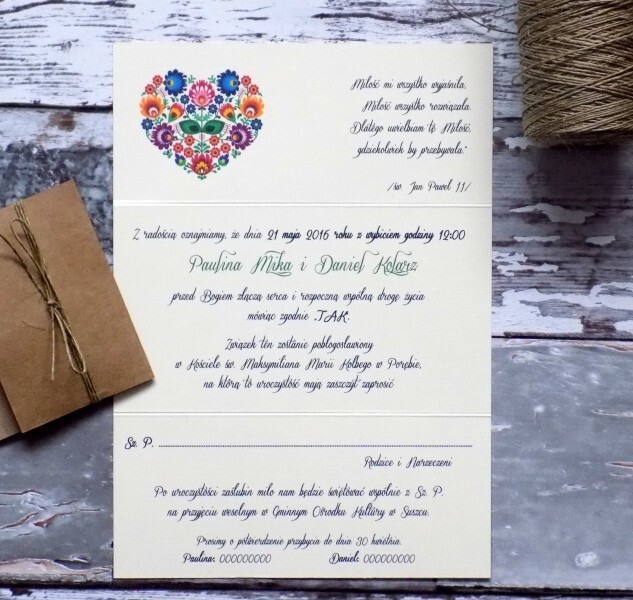 Miłość mi wszystko wyjaśniła,
Miłość wszystko rozwiązała.
Dlatego uwielbiam tę Miłość,
gdziekolwiek by przebywała."
/św. Jan Paweł II/
Z radością oznajmiamy, że dnia 21 maja 2016 roku z wybiciem godziny 12:00
Paulina Mika i Daniel Kolarz
przed Bogiem złączą serca i rozpoczną wspólną drogę życia
mówiąc zgodnie „TAK".
Związek ten zostanie pobłogosławiony
w Kościele św. Maksymiliana Marii Kolbego w Porębie,
na którą to uroczystość mają zaszczyt zaprosić
Sz. P. ........................................................................
Rodzice i Narzeczeni
Po uroczystości zaślubin miło nam będzie świętować wspólnie z Sz. P.
na przyjęciu weselnym w Gminnym Ośrodku Kultury w Suszcu.
Prosimy o potwierdzenie przybycia do dnia 30 kwietnia.
Paulina: 000000000 Daniel: 000000000